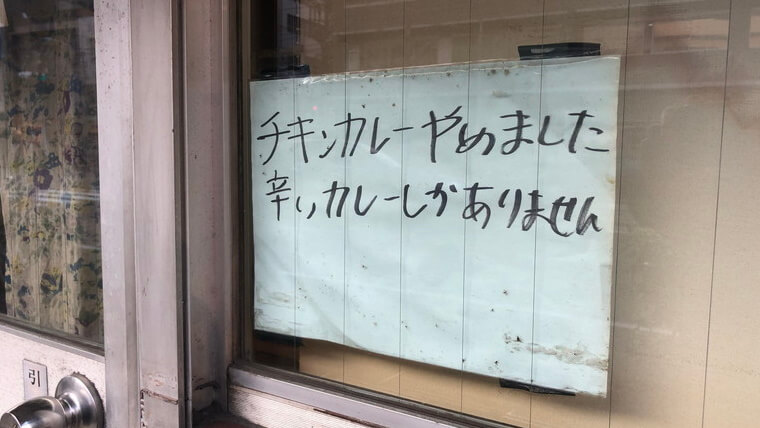 チキンカレーやめました
辛いカレーしかありません
引